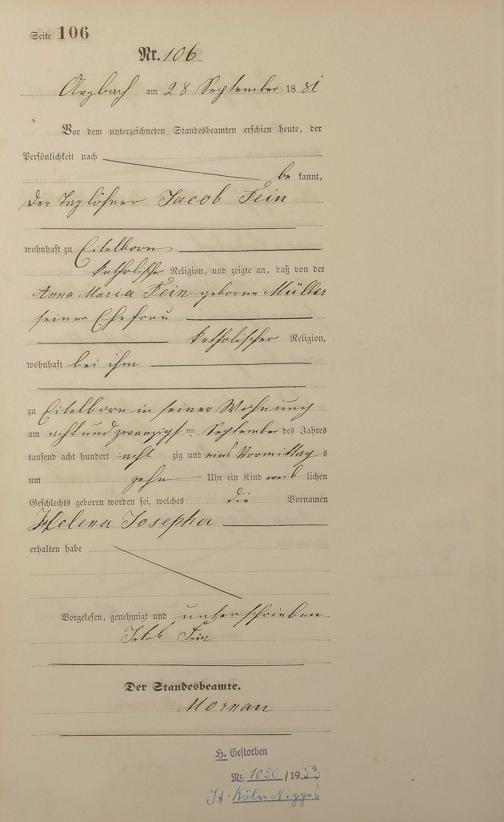 Seite 106
Nr. 106
Arzbach am 28 September 1881
Vor dem unterzeichneten Standesbeamten erschien heute, der
Persönlichkeit nach
be kannt,
der Taglöhner Jacob Fein
wohnhaft zu Eitelborn
katholischer Religion, und zeigte an, daß von der
Anna Maria Fein geborne Müller
seiner Ehefrau
katholischer Religion,
wohnhaft bei ihm
zu Eitelborn in seiner Wohnung
am acht und zwanzigsten September des Jahres
tausend acht hundert acht zig und eins Vormittags
um zehn Uhr ein Kind weib lichen
Geschlechts geboren worden sei, welches die Vornamen
Helena Josepha
erhalten habe
Vorgelesen, genehmigt und unterschrieben
Jakob Fein
Der Standesbeamte.
H. Gestorben
Nr. 1050 /19
St. Köln-Nippes